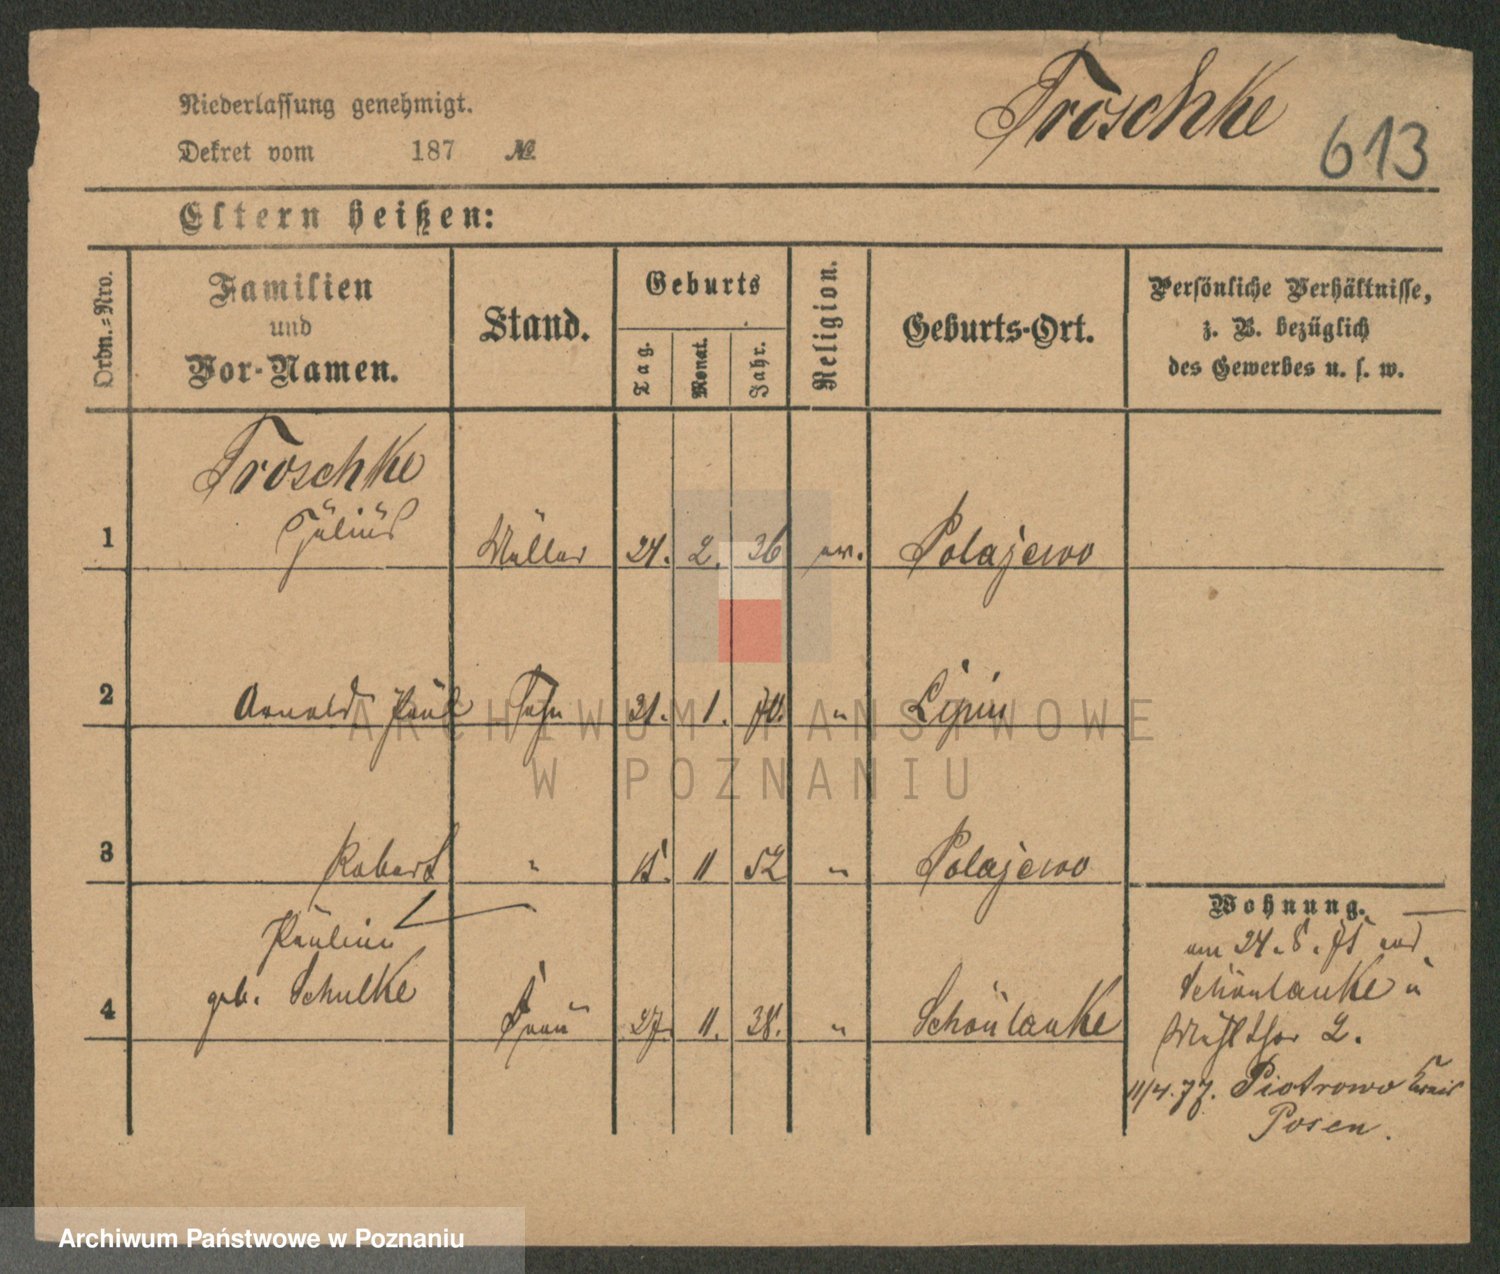 Troschke
613
Niederlassung genehmigt.
Dekret vom 187 №
Eltern heißen:
Ordn.=Nro.
Familien
und
Vor-Namen.
Stand.
Geburts
Tag.
Monat.
Jahr.
Religion.
Geburts-Ort.
Persönliche Verhältnisse,
z. B. bezüglich
des Gewerbes u. s. w.
Troschke
Julius
1 Müller 24. 2. 36 ev. Polajewo
2 Arnold Paul Sohn 31. 1. 70. " Lipin
3 Robert " 15. 11 52 " Polajewo
Pauline
geb. Schulke
4 Frau 27. 11. 38. " Schönlanke
Wohnung.
am 24. 8. 75 aus
Schönlanke n
Mühlthor 2.
11/4. 77. Piotrowo Kreis
Posen.
ARCHIWUM PAŃSTWOWE
W POZNANIU
Archiwum Państwowe w Poznaniu